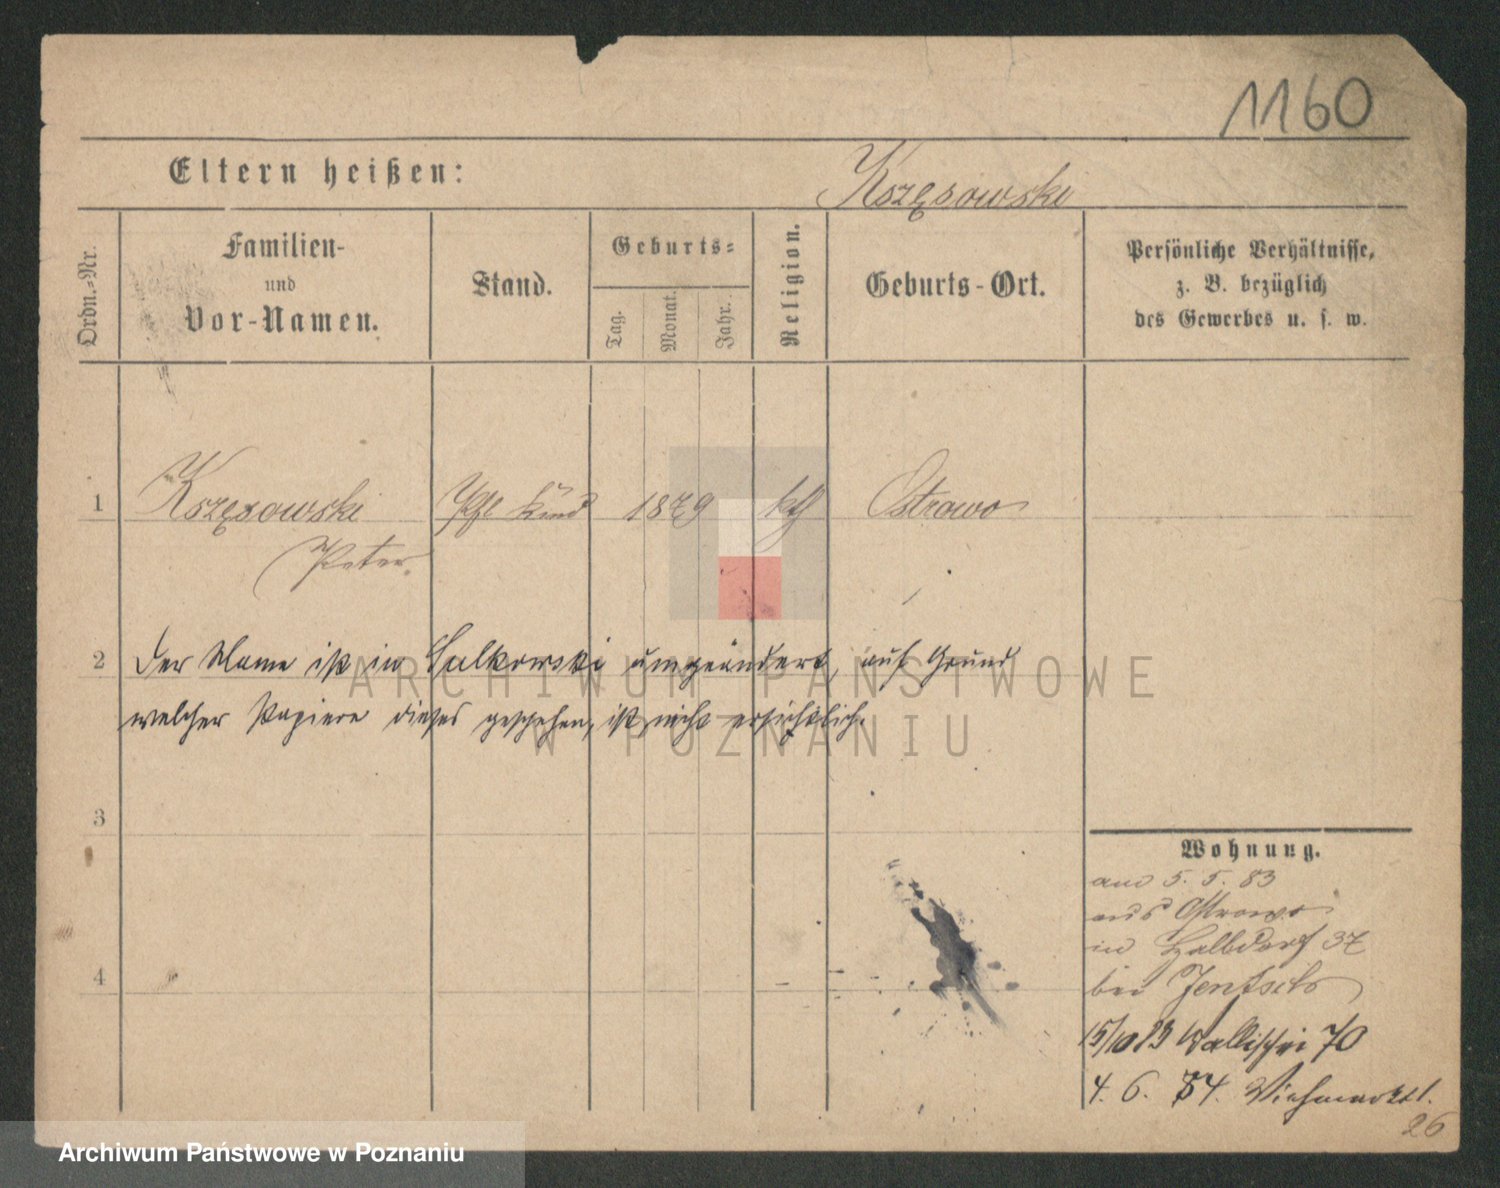 1160
Eltern heißen:
Kszęsowski
Ordn.-Nr.
Familien-
und
Vor-Namen.
Stand.
Geburts-
Tag.
Monat.
Jahr.
Religion.
Geburts-Ort.
Persönliche Verhältnisse,
z. B. bezüglich
des Gewerbes u. s. w.
1 Kszęsowski Pfl Kind 1879 kth Ostrowo
Peter
2 Der Name ist in Salkowski umgeändert, auf Grund
welcher Papiere dieses geschehen, ist nicht ersichtlich.
3
4
Wohnung.
5. 5. 83
aus Ostrowo
in Halbdorf 37
bei
15/10 83 Wallischei 70
4. 6. 84. Viehmarkt 1.
26
ARCHIWUM PAŃSTWOWE
W POZNANIU
Archiwum Państwowe w Poznaniu